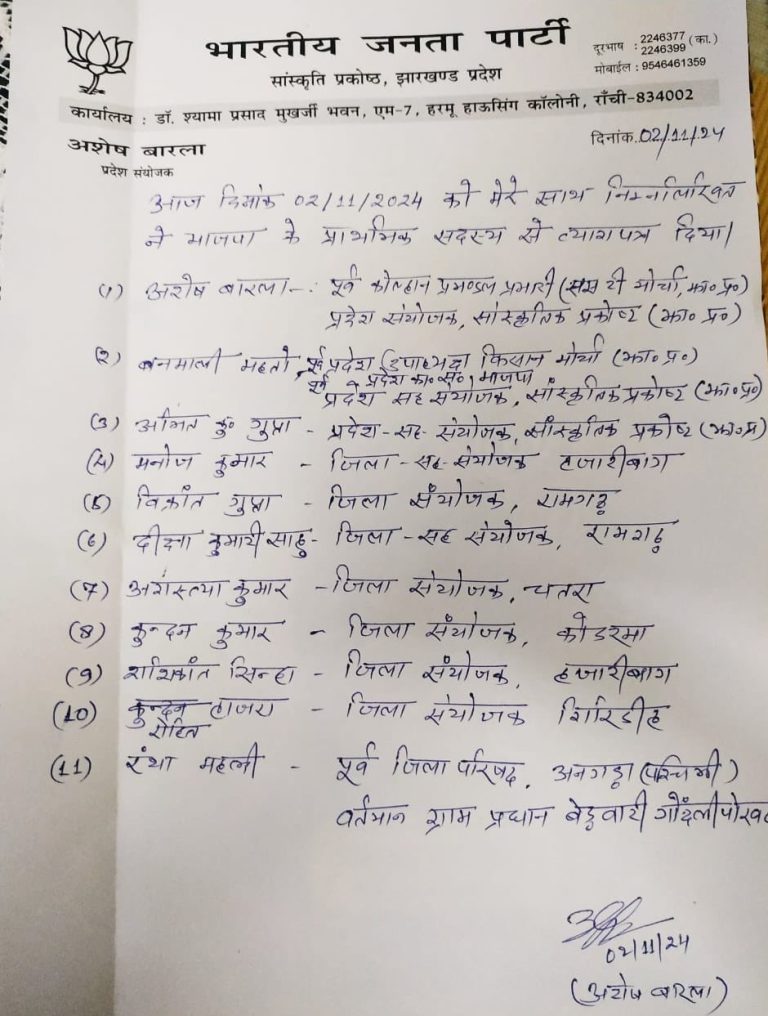 भारतीय जनता पार्टी
सांस्कृति प्रकोष्ठ, झारखण्ड प्रदेश
दूरभाष : 2246377 2246399 (का.)
मोबाईल : 9546461359
कार्यालय : डॉ. श्यामा प्रसाद मुखर्जी भवन, एम-7, हरमू हाऊसिंग कॉलोनी, राँची-834002
अशेष बारला
प्रदेश संयोजक
दिनांक.02/11/24
आज दिनांक 02/11/2024 को मेरे साथ निम्नलिखित
ने भाजपा के प्राथमिक सदस्य से त्यागपत्र दिया।
(1) अशेष बारला -: पूर्व कोल्हान प्रमण्डल प्रभारी (एस टी मोर्चा, झा० प्र०)
प्रदेश संयोजक, सांस्कृतिक प्रकोष्ठ (झा० प्र०)
(2) बनमाली महतो, पूर्व प्रदेश उपाध्यक्ष किसान मोर्चा (झा० प्र०)
पूर्व प्रदेश का० स० भाजपा
प्रदेश सह संयोजक, सांस्कृतिक प्रकोष्ठ (झा०प्र०)
(3) अमित कु० गुप्ता - प्रदेश-सह- संयोजक, सांस्कृतिक प्रकोष्ठ (झा०प्र)
(4) मनोज कुमार - जिला-सह-संयोजक हजारीबाग
(5) विक्रांत गुप्ता - जिला संयोजक, रामगढ़
(6) दीक्षा कुमारी साहु - जिला-सह संयोजक, रामगढ़
(7) अगस्त्या कुमार - जिला संयोजक, चतरा
(8) कुन्दन कुमार - जिला संयोजक, कोडरमा
(9) शशिकांत सिन्हा - जिला संयोजक, हजारीबाग
(10) कुन्दन हाजरा - जिला संयोजक गिरिडीह
रोहित
(11) रंथा महली - पूर्व जिला परिषद, अनगड़ा (पश्चिमी)
वर्तमान ग्राम प्रधान बेड़वारी गोंदलीपोखर
02/11/24
(अशेष बारला)